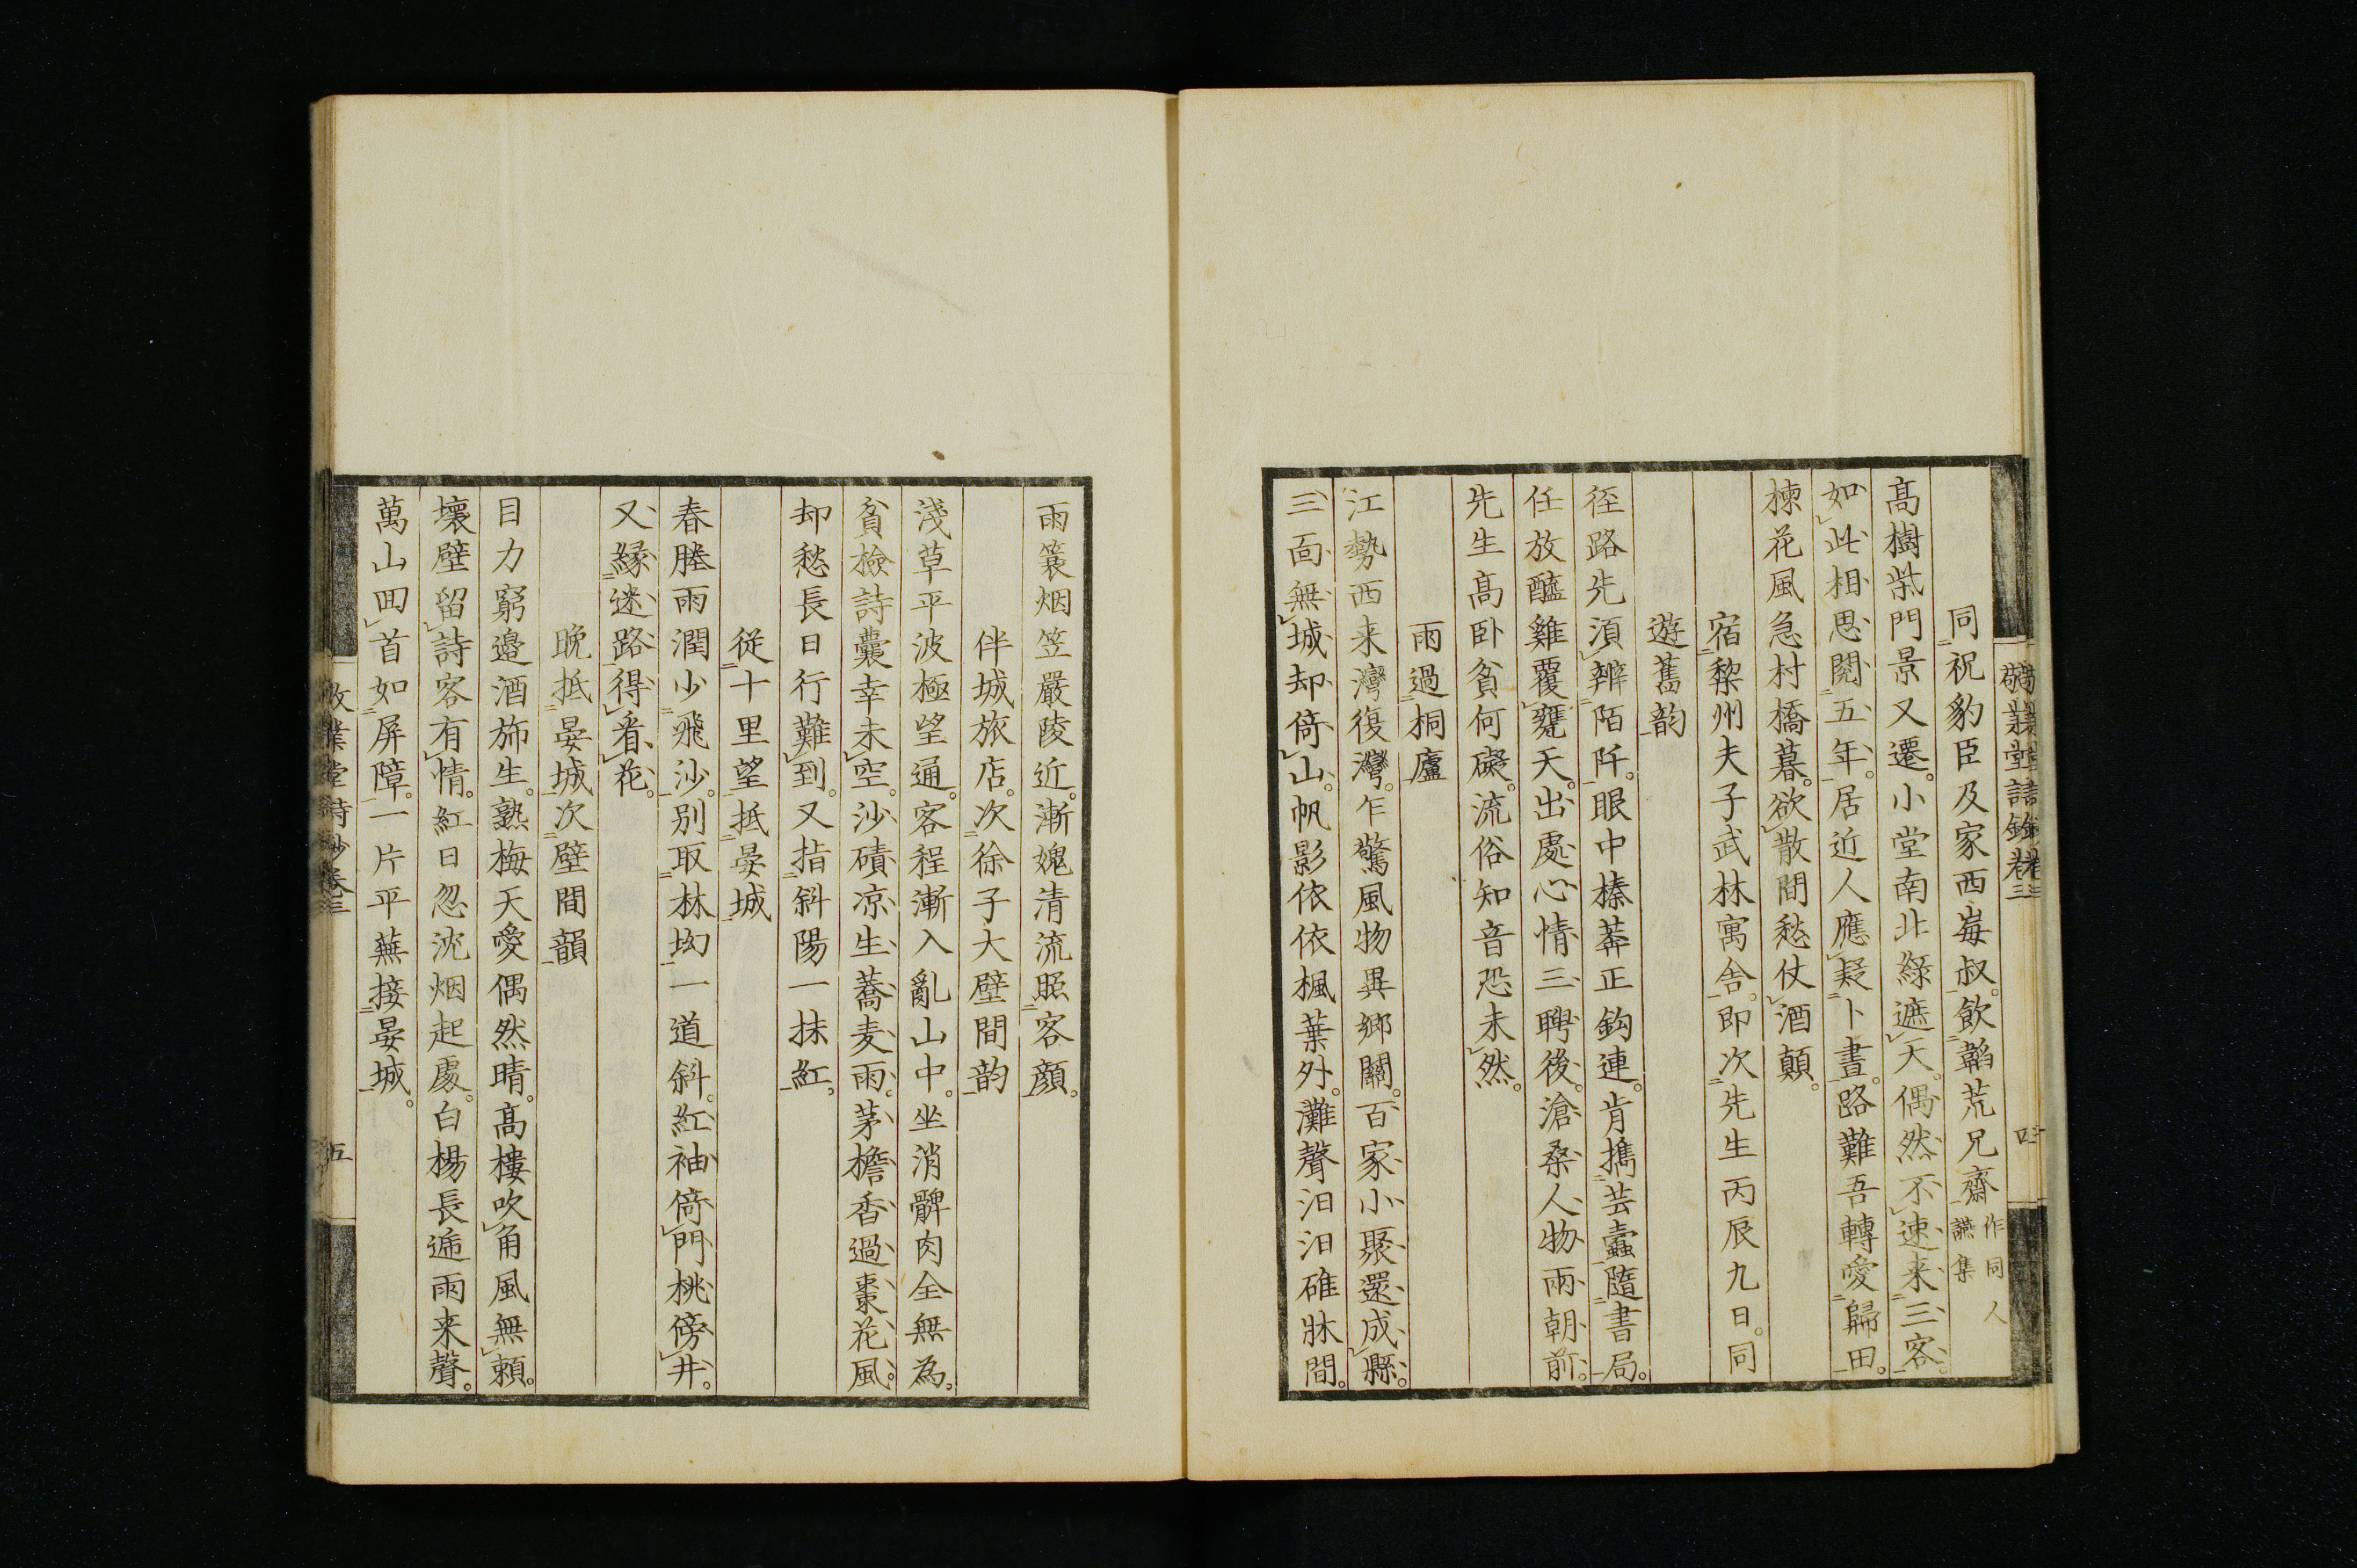 同祝豹臣及家西崦叔。飲韜荒兄齋作同人讌集
高樹柴門景又遷。小堂南北綠遮天。偶然不速来三客。
如此相思閱五年。居近人應疑卜晝。路難吾轉愛歸田。
楝花風急村橋暮。欲散閒愁仗酒顛。
宿黎州夫子武林寓舍。即次先生丙辰九日。同
遊舊韵
徑路先湏辨陌阡。眼中榛莽正鈎連。肯擕芸蠹隨書局。
任放醯雞覆甕天。出處心情三聘後。滄桑人物兩朝前。
先生高卧貧何礙。流俗知音恐未然。
雨過桐廬
江勢西来灣復灣。乍驚風物異鄉關。百家小聚還成縣。
三面無城却倚山。帆影依依楓葉外。灘聲汩汩碓牀間。
雨簑烟笠嚴陵近。漸媿清流照客顔。
伴城旅店。次徐子大壁間韵
淺草平波極望通。客程漸入亂山中。坐消髀肉全無為。
貧檢詩囊幸未空。沙磧凉生蕎麦雨。茅檐香過棗花風。
却愁長日行難到。又指斜陽一抹紅。
従十里望抵晏城
春塍雨潤少飛沙。別取林坳一道斜。紅袖倚門桃傍井。
又緣迷路得看花。
晚抵晏城次壁間韻
目力窮邉酒斾生。熟梅天愛偶然晴。高樓吹角風無賴。
壞壁留詩客有情。紅日忽沈烟起處。白楊長逓雨来聲。
萬山囬首如屏障。一片平蕪接晏城。
敬業堂詩鈔卷三
五